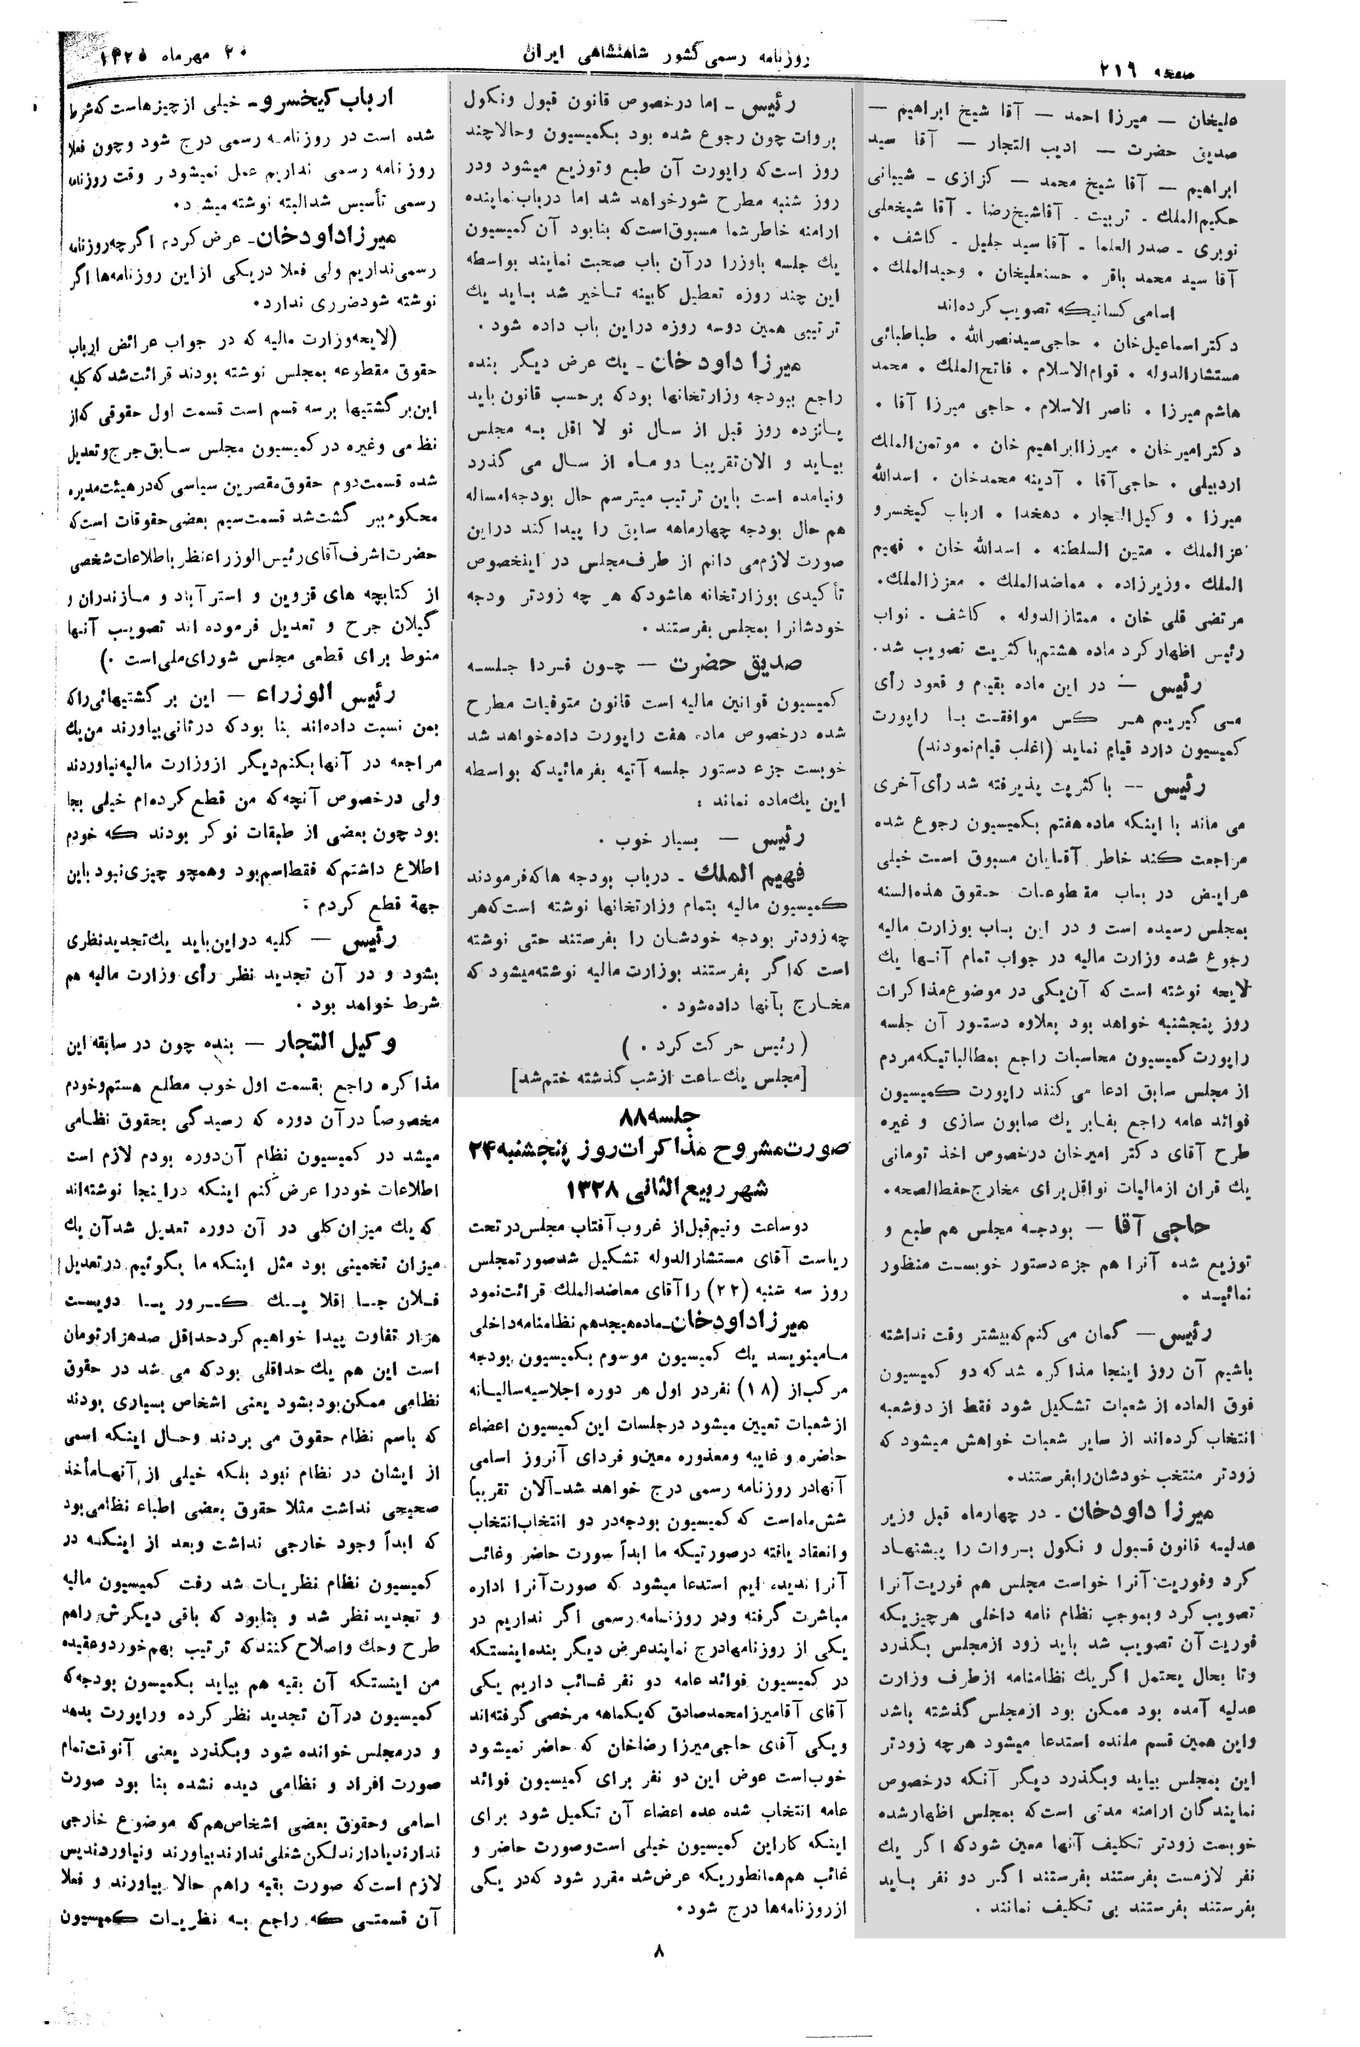 صفحه ۲۱۶
روزنامه رسمی کشور شاهنشاهی ایران
۲۰ مهرماه ۱۳۲۵
علیخان — میرزا احمد — آقا شیخ ابراهیم —
صدیق حضرت — ادیب التجار — آقا سید
ابراهیم — آقا شیخ محمد — کزازی - شیبانی
حکیم‌الملك . تربیت . آقاشیخ‌رضا . آقا شیخعلی
نوبری - صدرالعلما . آقا سید جلیل . کاشف .
آقا سید محمد باقر . حسنعلیخان . وحیدالملك .
اسامی کسانیکه تصویب کرده‌اند
دکتر اسماعیل خان . حاجی سید نصرالله . طباطبائی
مستشارالدوله . قوام‌الاسلام . فاتح‌الملك . محمد
هاشم میرزا . ناصر الاسلام . حاجی میرزا آقا .
دکتر امیرخان . میرزا ابراهیم خان . موتمن‌الملك
اردبیلی . حاجی‌آقا . آدینه محمدخان . اسدالله
میرزا . وکیل‌التجار . دهخدا . ارباب کیخسرو
عزالملك . متین السلطنه . اسدالله خان . فهیم
الملك . وزیرزاده . معاضدالملك . معززالملك.
مرتضی قلی خان . ممتازالدوله . کاشف . نواب
رئیس اظهار کرد ماده هشتم باکثریت تصویب شد.
رئیس — در این ماده بقیام و قعود رأی
می گیریم هر کس موافقت با راپورت
کمیسیون دارد قیام نماید (اغلب قیام نمودند)
رئیس — با کثریت پذیرفته شد رأی آخری
می ماند با اینکه ماده هفتم بکمیسیون رجوع شده
مراجعت کند خاطر آقایان مسبوق است خیلی
عرایض در باب مقطوعات حقوق هذه‌السنه
بمجلس رسیده است و در این باب بوزارت مالیه
رجوع شده وزارت مالیه در جواب تمام آنها یك
لایحه نوشته است که آن یکی در موضوع مذاکرات
روز پنجشنبه خواهد بود بعلاوه دستور آن جلسه
راپورت کمیسیون محاسبات راجع بمطالباتیکه مردم
از مجلس سابق ادعا می کنند راپورت کمیسیون
فوائد عامه راجع بفابریك صابون سازی و غیره
طرح آقای دکتر امیرخان درخصوص اخذ تومانی
یك قران از مالیات نواقل برای مخارج حفظ الصحه.
حاجی آقا — بودجه مجلس هم طبع و
توزیع شده آنرا هم جزء دستور خوبست منظور
نمائید .
رئیس — گمان می کنم که بیشتر وقت نداشته
باشیم آن روز اینجا مذاکره شد که دو کمیسیون
فوق العاده از شعبات تشکیل شود فقط از دو شعبه
انتخاب کرده‌اند از سایر شعبات خواهش میشود که
زودتر منتخب خودشان را بفرستند.
میرزا داودخان - در چهارماه قبل وزیر
عدلیه قانون قبول و نکول بروات را پیشنهاد
کرد وفوریت آنرا خواست مجلس هم فوریت آنرا
تصویب کرد وبموجب نظام نامه داخلی هرچیزیکه
فوریت آن تصویب شد باید زود ازمجلس بگذرد
وتا بحال یحتمل اگر یك نظامنامه ازطرف وزارت
عدلیه آمده بود ممکن بود ازمجلس گذشته باشد
واین همین قسم مانده استدعا میشود هرچه زودتر
این بمجلس بیاید وبگذرد دیگر آنکه درخصوص
نمایندگان ارامنه مدتی است که بمجلس اظهارشده
خوبست زودتر تکلیف آنها معین شود که اگر یك
نفر لازمست بفرستند بفرستند اگر دو نفر باید
بفرستند بفرستند بی تکلیف نمانند .
رئیس - اما درخصوص قانون قبول ونکول
بروات چون رجوع شده بود بکمیسیون وحالا چند
روز است که راپورت آن طبع وتوزیع میشود ودر
روز شنبه مطرح شور خواهد شد اما درباب نماینده
ارامنه خاطر شما مسبوق است که بنا بود آن کمیسیون
یك جلسه باوزرا درآن باب صحبت نمایند بواسطه
این چند روزه تعطیل کابینه تاخیر شد باید یك
ترتیبی همین دوسه روزه دراین باب داده شود .
میرزا داودخان - یك عرض دیگر بنده
راجع ببودجه وزارتخانها بود که برحسب قانون باید
پانزده روز قبل از سال نو لا اقل به مجلس
بیاید و الان تقریبا دو ماه از سال می گذرد
ونیامده است باین ترتیب میترسم حال بودجه امساله
هم حال بودجه چهارماهه سابق را پیدا کند دراین
صورت لازم می دانم از طرف مجلس در اینخصوص
تأکیدی بوزارتخانه ها شود که هر چه زودتر ودجه
خودشانرا بمجلس بفرستند .
صدیق حضرت — چون فردا جلسه
کمیسیون قوانین مالیه است قانون متوفیات مطرح
شده درخصوص ماده هفت راپورت داده خواهد شد
خوبست جزء دستور جلسه آتیه بفرمائید که بواسطه
این یك ماده نماند :
رئیس — بسیار خوب .
فهیم الملك - درباب بودجه ها که فرمودند
کمیسیون مالیه بتمام وزارتخانها نوشته است که هر
چه زودتر بودجه خودشان را بفرستند حتی نوشته
است که اگر بفرستند بوزارت مالیه نوشته میشود که
مخارج بآنها داده شود .
( رئیس حرکت کرد . )
[مجلس یك ساعت از شب گذشته ختم شد]
جلسه ۸۸
صورت مشروح مذاکرات روز پنجشنبه ۲۴
شهر ربیع الثانی ۱۳۲۸
دو ساعت ونیم قبل از غروب آفتاب مجلس در تحت
ریاست آقای مستشارالدوله تشکیل شد صورتمجلس
روز سه شنبه (۲۲) را آقای معاضدالملك قرائت نمود
میرزا داودخان - ماده هیجدهم نظامنامه داخلی
ما مینویسد یك کمیسیون موسوم بکمیسیون بودجه
مرکب از (۱۸) نفر در اول هر دوره اجلاسیه سالیانه
از شعبات تعیین میشود در جلسات این کمیسیون اعضاء
حاضره و غایبه ومعذوره معین و فردای آنروز اسامی
آنها در روزنامه رسمی درج خواهد شد - الان تقریباً
شش ماه است که کمیسیون بودجه در دو انتخاب انتخاب
وانعقاد یافته درصورتیکه ما ابداً صورت حاضر وغائب
آنرا ندیده ایم استدعا میشود که صورت آنرا اداره
مباشرت گرفته ودر روزنامه رسمی اگر نداریم در
یکی از روزنامها درج نمایند عرض دیگر بنده اینستکه
در کمیسیون فوائد عامه دو نفر غائب داریم یکی
آقای آقامیرزا محمد صادق که یکماهه مرخصی گرفته‌اند
ویکی آقای حاجی میرزا رضاخان که حاضر نمیشود
خوب است عوض این دو نفر برای کمیسیون فوائد
عامه انتخاب شده عده اعضاء آن تکمیل شود برای
اینکه کار این کمیسیون خیلی است وصورت حاضر و
غائب هم همانطوریکه عرض شد مقرر شود که در یکی
از روزنامه‌ها درج شود.
ارباب کیخسرو - خیلی از چیزها است که شرط
شده است در روزنامه رسمی درج شود وچون فعلا
روزنامه رسمی نداریم عمل نمیشود هر وقت روزنامه
رسمی تأسیس شد البته نوشته میشود.
میرزا داودخان - عرض کردم اگرچه روزنامه
رسمی نداریم ولی فعلا در یکی از این روزنامه‌ها اگر
نوشته شود ضرری ندارد.
(لایحه وزارت مالیه که در جواب عرائض ارباب
حقوق مقطوعه بمجلس نوشته بودند قرائت شد که کلیه
این بر گشتیها برسه قسم است قسمت اول حقوقی که از
نظامی وغیره در کمیسیون مجلس سابق جرح و تعدیل
شده قسمت دوم حقوق مقصرین سیاسی که در هیئت مدیره
محکوم ببر گشت شد قسمت سیم بعضی حقوقات است که
حضرت اشرف آقای رئیس الوزراء نظر باطلاعات شخصی
از کتابچه های قزوین و استرآباد و مازندران و
گیلان جرح و تعدیل فرموده اند تصویب آنها
منوط برای قطعی مجلس شورای ملی است .)
رئیس الوزراء — این بر گشتیهائی راکه
بمن نسبت داده‌اند بنا بود که درثانی بیاورند من یك
مراجعه در آنها بکنم دیگر از وزارت مالیه نیاوردند
ولی درخصوص آنچه که من قطع کرده‌ام خیلی بجا
بود چون بعضی از طبقات نوکر بودند که خودم
اطلاع داشتم که فقط اسم بود وهمچو چیزی نبود باین
جهة قطع کردم :
رئیس — کلیه در این باید یك تجدید نظری
بشود و در آن تجدید نظر رأی وزارت مالیه هم
شرط خواهد بود .
وکیل التجار — بنده چون در سابقه این
مذاکره راجع بقسمت اول خوب مطلع هستم وخودم
مخصوصاً درآن دوره که رسیدگی بحقوق نظامی
میشد در کمیسیون نظام آن دوره بودم لازم است
اطلاعات خودرا عرض کنم اینکه در اینجا نوشته‌اند
که یك میزان کلی در آن دوره تعدیل شد آن یك
میزان تخمینی بود مثل اینکه ما بگوئیم در تعدیل
فلان جا اقلا یك کرور یا دویست
هزار تفاوت پیدا خواهیم کرد حداقل صد هزار تومان
است این هم یك حداقلی بود که می شد در حقوق
نظامی ممکن بود بشود یعنی اشخاص بسیاری بودند
که باسم نظام حقوق می بردند وحال اینکه اسمی
از ایشان در نظام نبود بلکه خیلی از آنها مأخذ
صحیحی نداشت مثلا حقوق بعضی اطباء نظامی بود
که ابداً وجود خارجی نداشت وبعد از اینکه در
کمیسیون نظام نظریات شد رفت کمیسیون مالیه
و تجدید نظر شد و بنابود که باقی دیگرش راهم
طرح وحك واصلاح کنند که ترتیب بهم خورد و عقیده
من اینستکه آن بقیه هم بیاید بکمیسون بودجه که
کمیسیون درآن تجدید نظر کرده وراپورت بدهد
و در مجلس خوانده شود وبگذرد یعنی آنوقت تمام
صورت افراد و نظامی دیده نشده بنا بود صورت
اسامی وحقوق بعضی اشخاص هم که موضوع خارجی
ندارند یا دارند لکن شغلی ندارند بیاورند ونیاوردند پس
لازم است که صورت بقیه راهم حالا بیاورند و فعلا
آن قسمتی که راجع به نظریات کمیسیون
۸